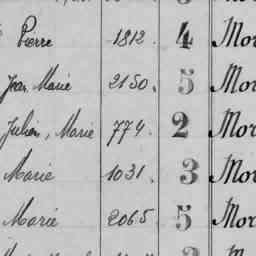 Pierre 1812. 4 Mor
Jean Marie 2150. 5 Mor
Julien, Marie 774. 2 Mor
Marie 1031. 3 Mor
Marie 2065. 5 Mor